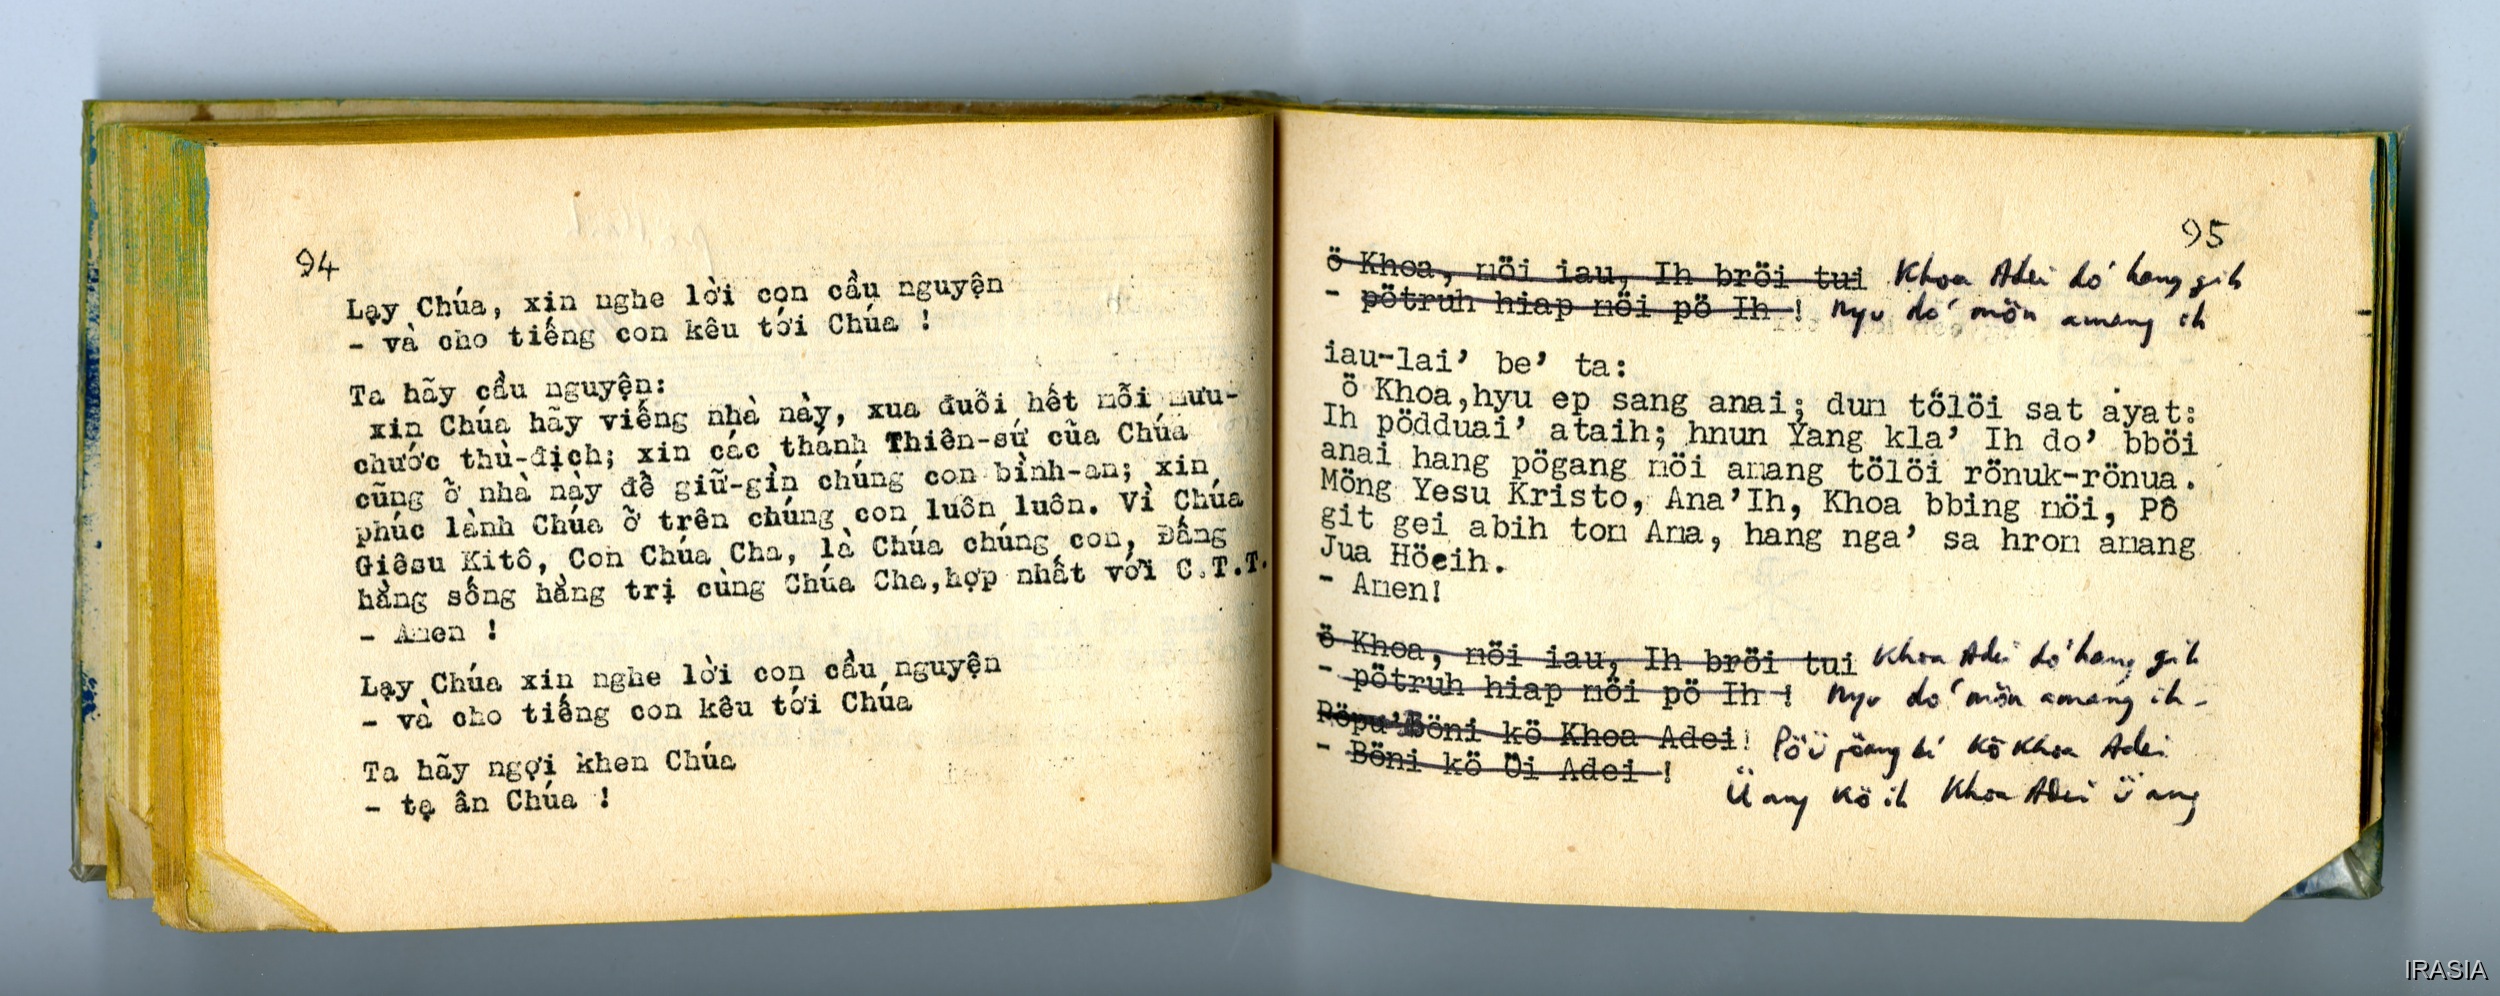 94
Lạy Chúa, xin nghe lời con cầu nguyện
- và cho tiếng con kêu tới Chúa !
Ta hãy cầu nguyện:
xin Chúa hãy viếng nhà này, xua đuổi hết mỗi mưu-
chước thù-địch; xin các thánh Thiên-sứ cũa Chúa
cũng ỡ nhà này đề giữ-gìn chúng con bình-an; xin
phúc lành Chúa ỡ trên chúng con luôn luôn. Vì Chúa
Giêsu Kitô, Con Chúa Cha, là Chúa chúng con, Đấng
hằng sống hằng trị cùng Chúa Cha,hợp nhất với C.T.T.
- Amen !
Lạy Chúa xin nghe lời con cầu nguyện
- và cho tiếng con kêu tới Chúa
Ta hãy ngợi khen Chúa
- tạ ân Chúa !
95
ö Khoa, nöi iau, Ih bröi tui Khoa Adei dó hang gih
- pötruh hiap nöi pö Ih ! Nyu dó mön amang ih
iau-lai' be' ta:
ö Khoa,hyu ep sang anai; dun tölöi sat ayat:
Ih pödduai' ataih; hnun Yang kla' Ih do' bböi
anai hang pögang möi amang tölöi rönuk-rönua.
Möng Yesu Kristo, Ana'Ih, Khoa bbing möi, Pô
git gei abih tom Ama, hang nga' sa hrom amang
Jua Höeih.
- Amen!
ö Khoa, nöi iau, Ih bröi tui Khoa Adei dó hang gih
- pötruh hiap nöi pö Ih ! Nyu dó mön amang ih -
Böni kö Khoa Adei! kö Khoa Adei
- Böni kö Öi Adei ! Ü ang kö ih Khoa Adei Ü ang
IRASIA